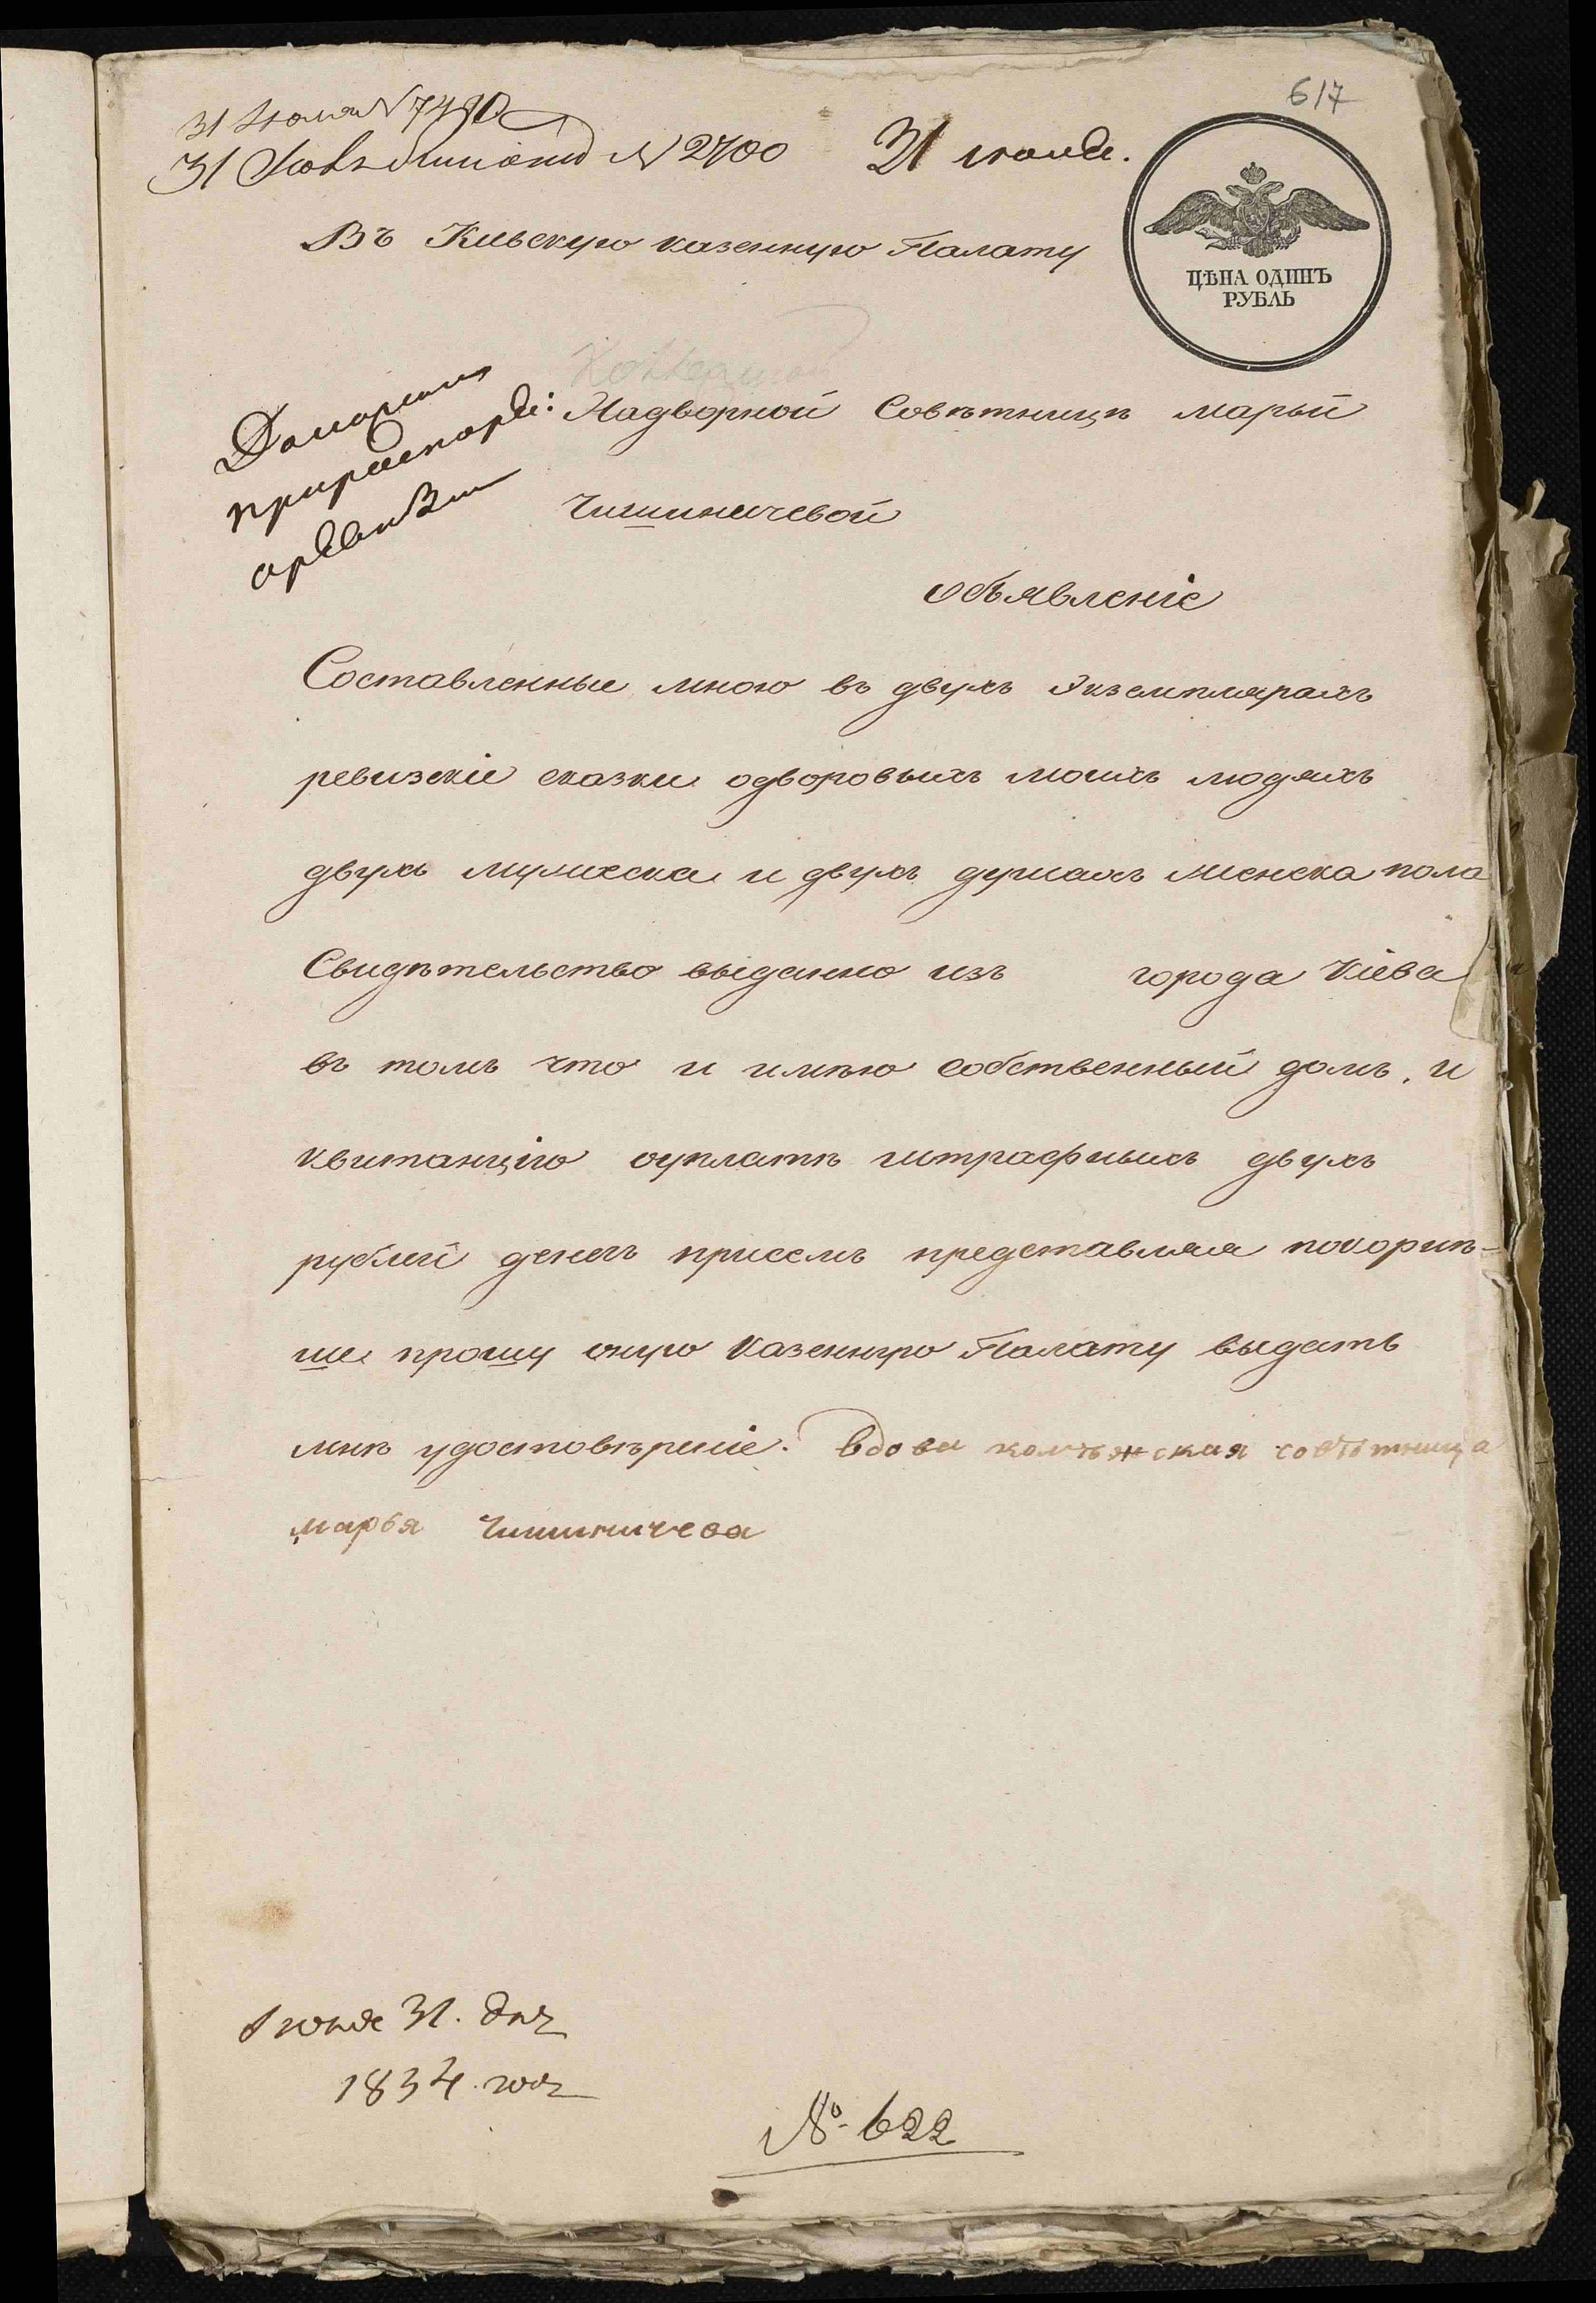 617
31 Июля N 7480
31 N 2700 31 июля.
Въ Киевскую казенную Палату
ЦѢНА ОДИНЪ
РУБЛЬ
Надворной Совѣтницѣ марьи
Чишиничевой
объявленіе
Составленные мною въ двухъ Экземплярахъ
ревизскіе сказки одворовыхъ моихъ людяхъ
двухъ мужеска и двухъ душахъ женска пола
Свидѣтельство выданно изъ города Кіева
въ томъ что и имѣю собственный домъ. и
квитанцію оуплатѣ штрафныхъ двухъ
рублей денегъ присемъ представляя покорнѣ-
ше прошу оную Казенную Палату выдать
мнѣ удостовѣреніе. вдова колѣжская совѣтница
марья Чишиничева
31. дня
1834. года
№ 622